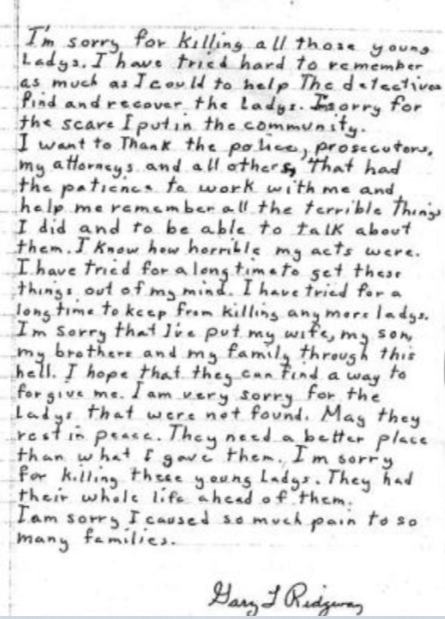 I'm sorry for killing all those young
Ladys. I have tried hard to remember
as much as I could to help The detectives
find and recover the Ladys. I'm sorry for
the scare I put in the community.
I want to Thank the police, prosecutors,
my attorneys, and all others, That had
the patience to work with me and
help me remember all the terrible Things
I did and to be able to talk about
them. I know how horrible my acts were.
I have tried for a long time to get these
things out of my mind. I have tried for a
long time to keep from killing any more ladys.
I'm sorry that I've put my wife, my son,
my brothers and my family through this
hell. I hope that they can find a way to
forgive me. I am very sorry for the
Ladys that were not found. May they
rest in peace. They need a better place
than what I gave them. I'm sorry
for killing these young Ladys. They had
their whole life ahead of them.
I am sorry I caused so much pain to so
many families.
Gary L Ridgway